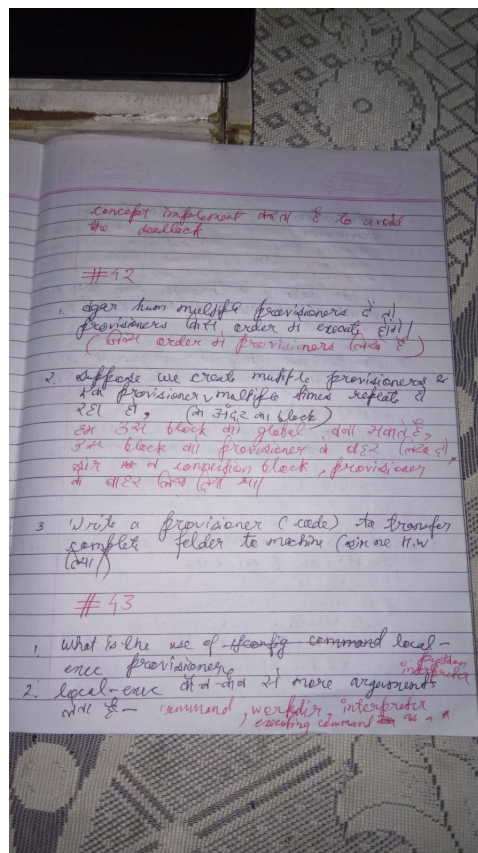 concept implement करना है to avoid
the deadlock
#42
1. अगर hum multiple provisioners दे तो
provisioners किस order में execute होंगे
(जिस order में provisioners लिखे है)
2. suppose we create multiple provisioners &
एक provisioner multiple times repeat हो
रहा हो, (के अन्दर का block)
हम उस block को global बना सकते है,
उस block को provisioner के बाहर लिख दो,
connection block, provisioner
के बाहर लिख दिया था
3 Write a provisioner (code) to transfer
complete folder to machine (sir ne H.W
दिया)
#43
1. what is the use of ifconfig command local-
exec provisioners
2. local-exec कौन-कौन से more arguments
लेता है - command, workdir, interpreter
executing command as a
python
interpreter